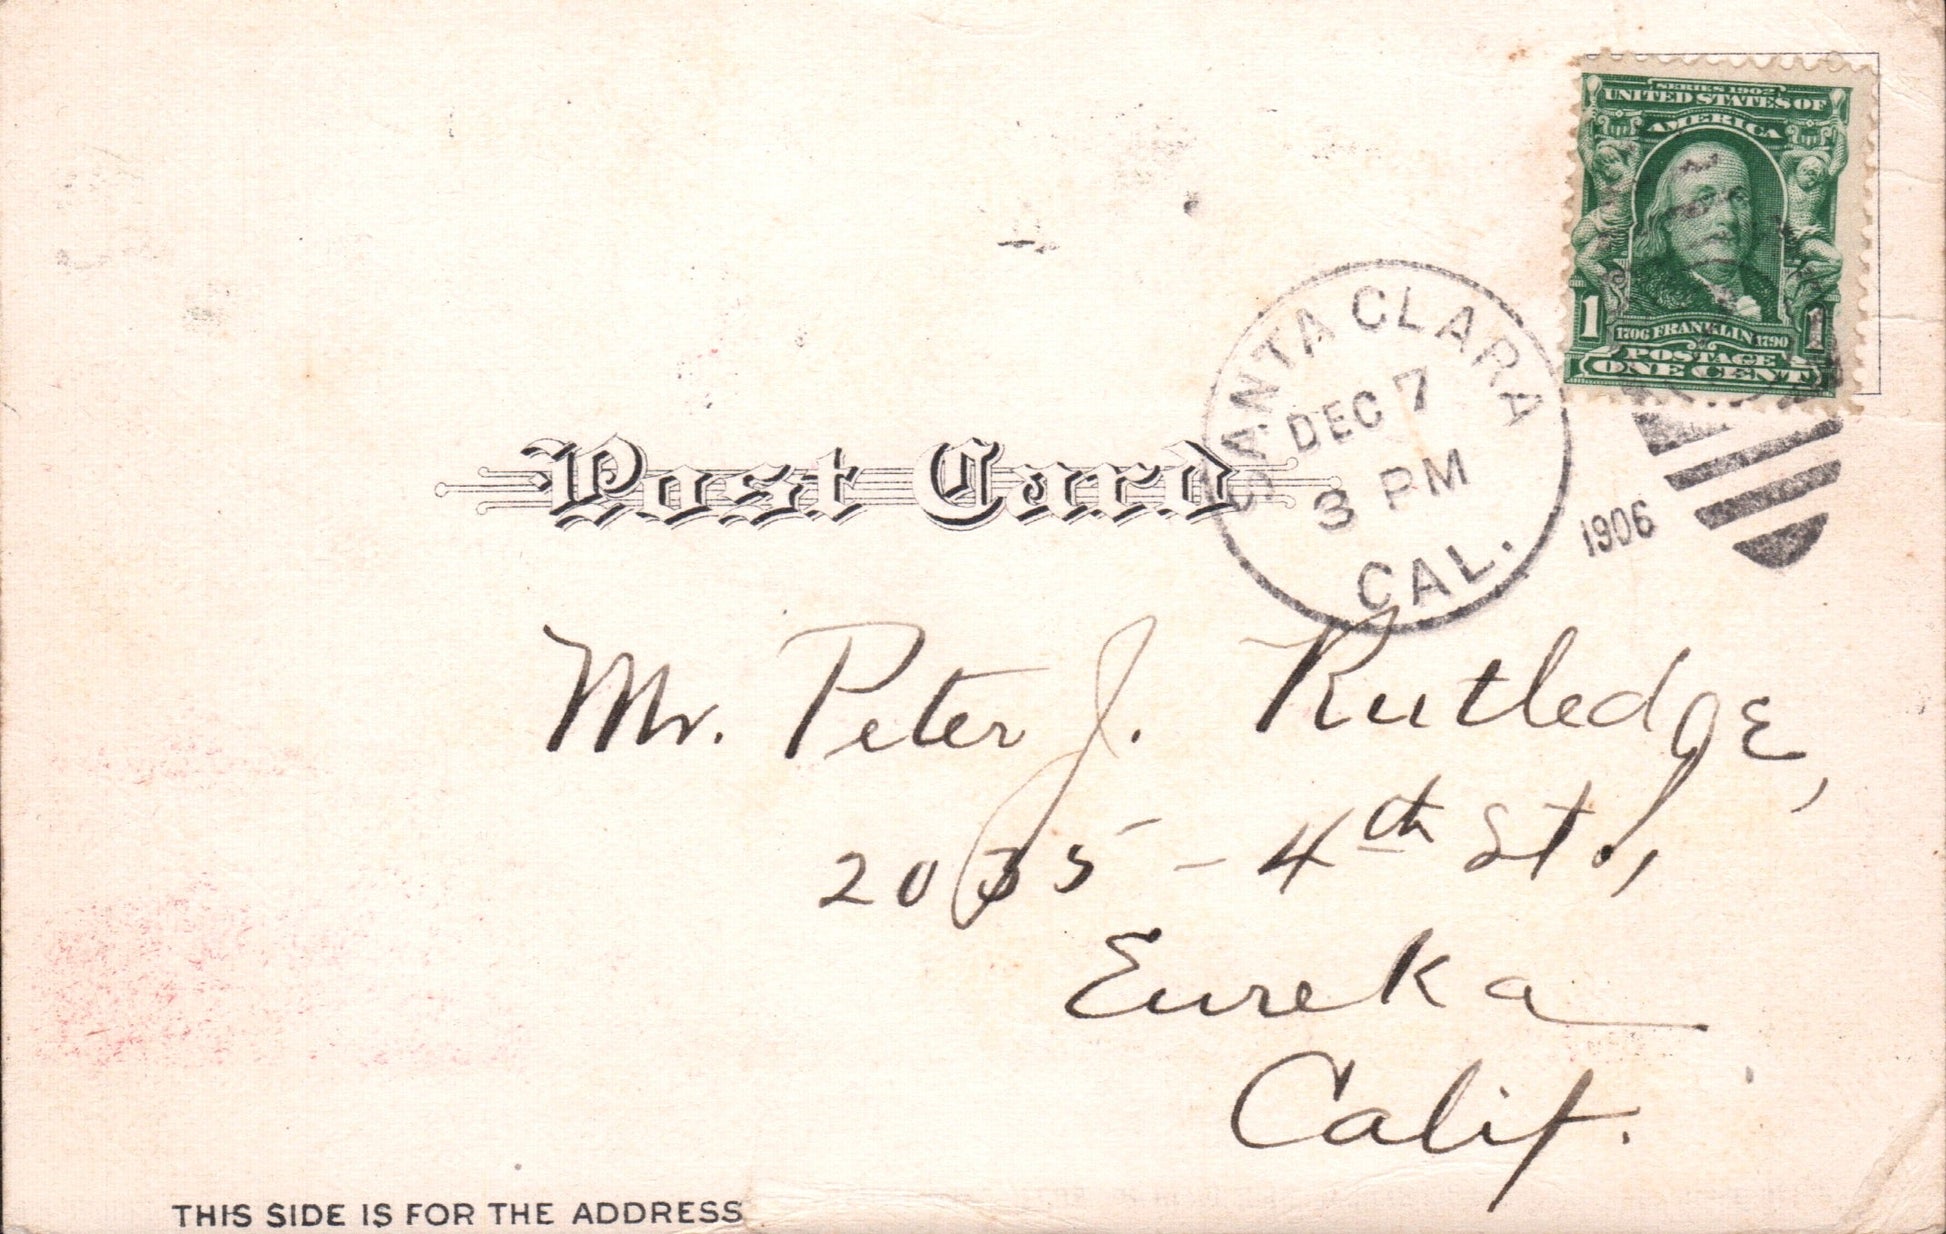 SERIES 1902
UNITED STATES OF
AMERICA
1 1
1706 FRANKLIN 1790
POSTAGE
ONE CENT
SANTA CLARA
DEC 7
3 PM
1906
CAL.
Post Card
Mr. Peter J. Rutledge,
2035 - 4th St.,
Eureka
Calif.
THIS SIDE IS FOR THE ADDRESS